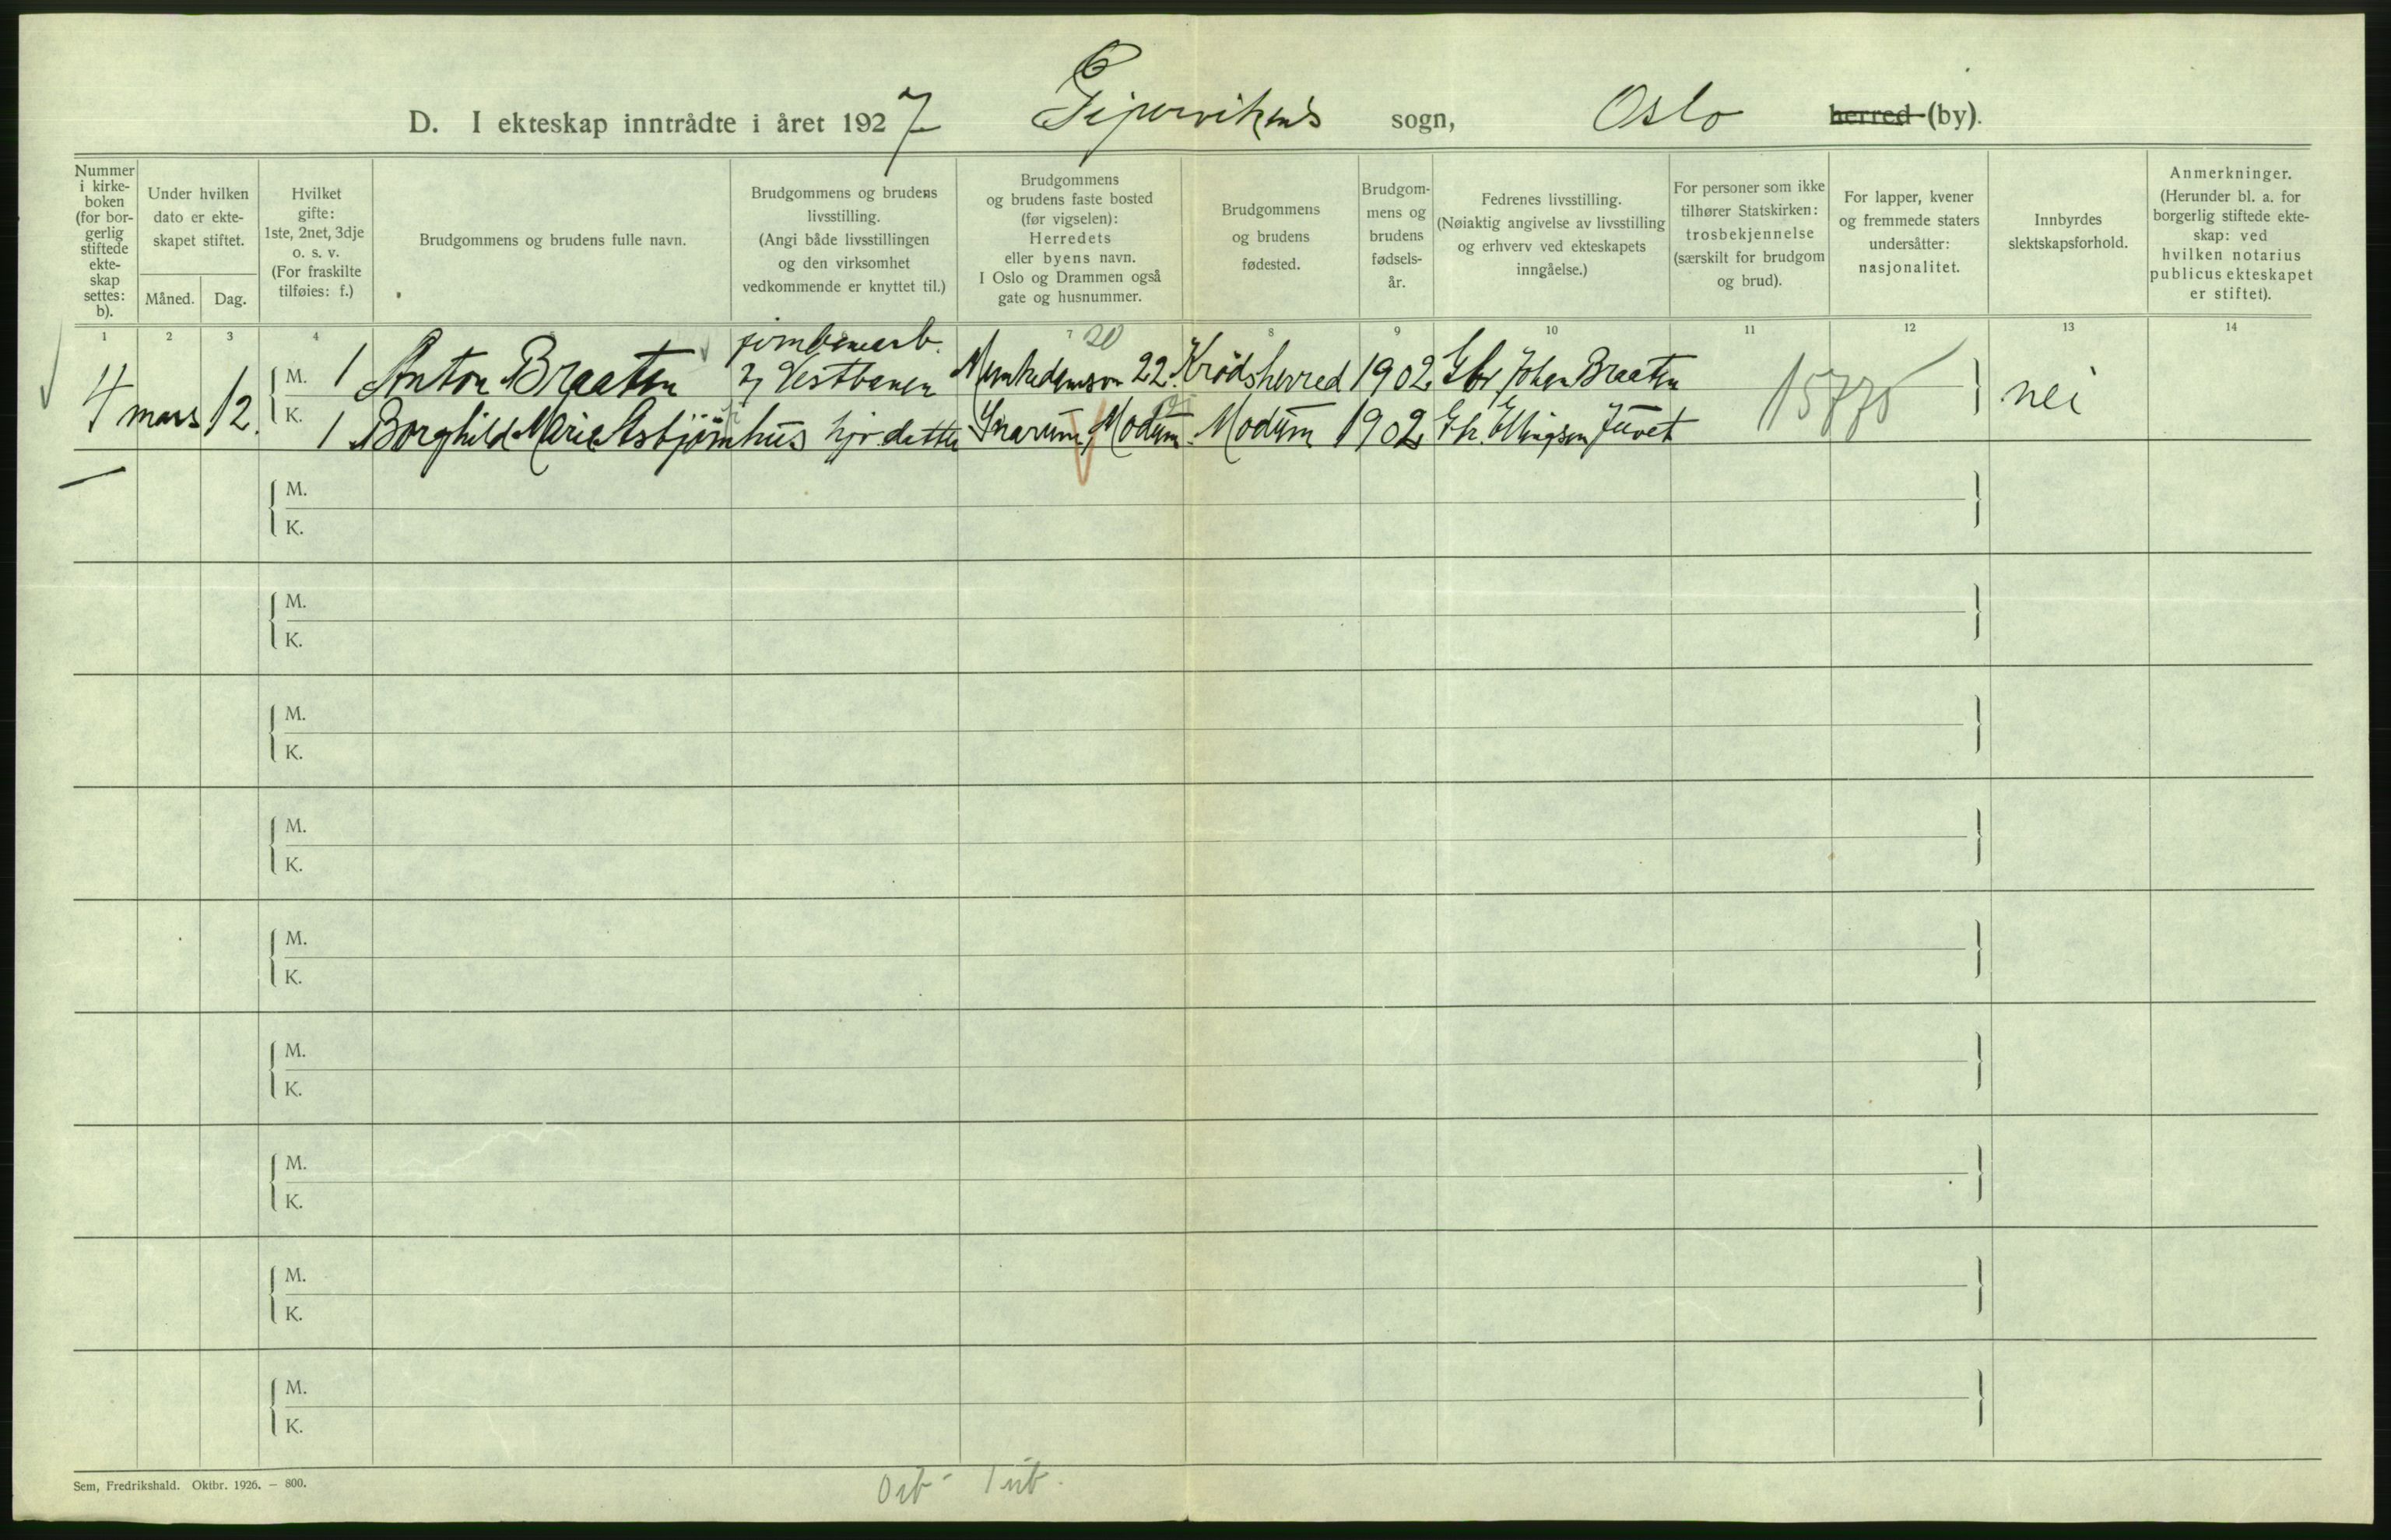 D. I ekteskap inntrådte i året 1927 Pipervikens sogn, Oslo herred (by).
Nummer i kirke-boken (for bor-gerlig stiftede ekte-skap settes: b).
Under hvilken dato er ekte-skapet stiftet.
Måned. Dag.
Hvilket gifte: 1ste, 2net, 3dje o. s. v. (For fraskilte tilføies: f.)
Brudgommens og brudens fulle navn.
Brudgommens og brudens livsstilling. (Angi både livsstillingen og den virksomhet vedkommende er knyttet til.)
Brudgommens og brudens faste bosted (før vigselen): Herredets eller byens navn. I Oslo og Drammen også gate og husnummer.
Brudgommens og brudens fødested.
Brudgom-mens og brudens fødsels-år.
Fedrenes livsstilling. (Nøiaktig angivelse av livsstilling og erhverv ved ekteskapets inngåelse.)
For personer som ikke tilhører Statskirken: trosbekjennelse (særskilt for brudgom og brud).
For lapper, kvener og fremmede staters undersåtter: nasjonalitet.
Innbyrdes slektskapsforhold.
Anmerkninger. (Herunder bl. a. for borgerlig stiftede ekte-skap: ved hvilken notarius publicus ekteskapet er stiftet).
1 2 3 4 5 6 7 8 9 10 11 12 13 14
jernbanearb. 20
4 mars 12. M. 1 Anton Braaten v Vestbanen Munkedamsvn 22. Krødsherred 1902 Gbr Johan Braaten 15775 nei
K. 1 Borghild Marie Asbjørnhus hjv. datter Snarum, Modum. Modum 1902 Ellingsen Juvet
M.
K.
M.
K.
M.
K.
M.
K.
M.
K.
M.
K.
M.
K.
M.
K.
M.
K.
Sem, Fredrikshald. Oktbr. 1926. — 800.